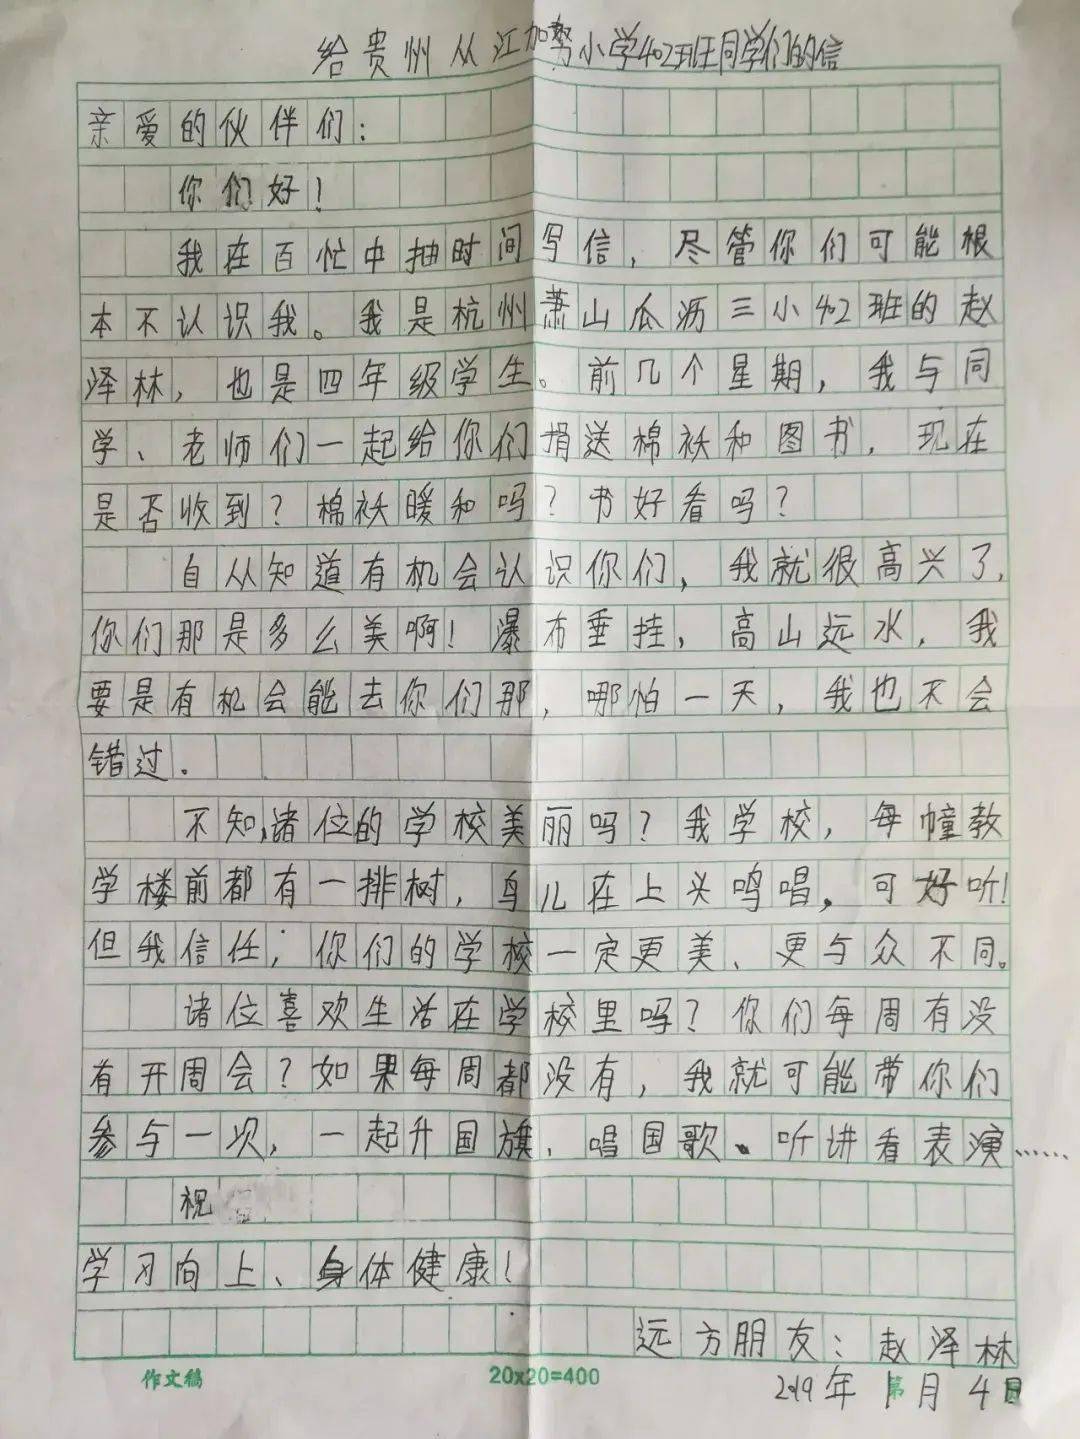 给贵州从江加势小学402班同学们的信
亲爱的伙伴们：
你们好！
我在百忙中抽时间写信，尽管你们可能根
本不认识我。我是杭州萧山瓜沥三小402班的赵
泽林，也是四年级学生。前几个星期，我与同
学、老师们一起给你们捐送棉袄和图书，现在
是否收到？棉袄暖和吗？书好看吗？
自从知道有机会认识你们，我就很高兴了，
你们那是多么美啊！瀑布垂挂，高山远水，我
要是有机会能去你们那，哪怕一天，我也不会
错过。
不知，诸位的学校美丽吗？我学校，每幢教
学楼前都有一排树，鸟儿在上头鸣唱，可好听！
但我信任，你们的学校一定更美、更与众不同。
诸位喜欢生活在学校里吗？你们每周有没
有开周会？如果每周都没有，我就可能带你们
参与一次，一起升国旗，唱国歌、听讲看表演……
祝
学习向上、身体健康！
远方朋友：赵泽林
作文稿 20×20=400 第
2019年1月4日